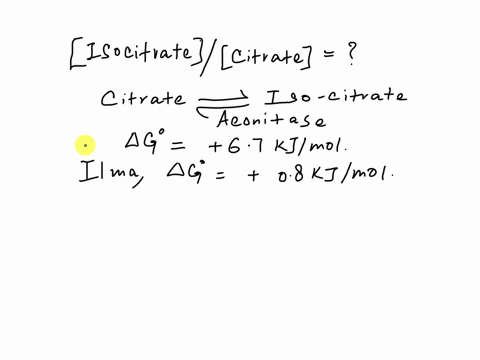 [Isocitrate]/[Citrate] = ?
Citrate ⇌ Iso-citrate
Aconitase
ΔG° = +6.7 KJ/mol.
Ilma, ΔG° = + 0.8 KJ/mol.